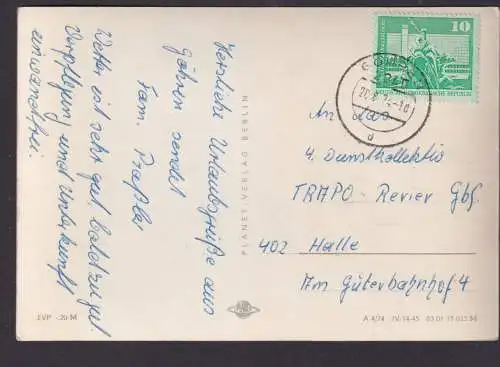 Herzliche Urlaubsgrüße aus
Göhren sendet
Fam. Preßler
Wetter ist sehr gut, bald zu gut.
Verpflegung und Unterkunft
einwandfrei.
PLANET-VERLAG BERLIN
10
DEUTSCHE DEMOKRATISCHE REPUBLIK
An das
4. Dienstkollektiv
TRAPO-Revier Gbf.
402 Halle
Am Güterbahnhof 4
EVP -,20 M
A 4/74 IV-14-45 03 01 15 023 56